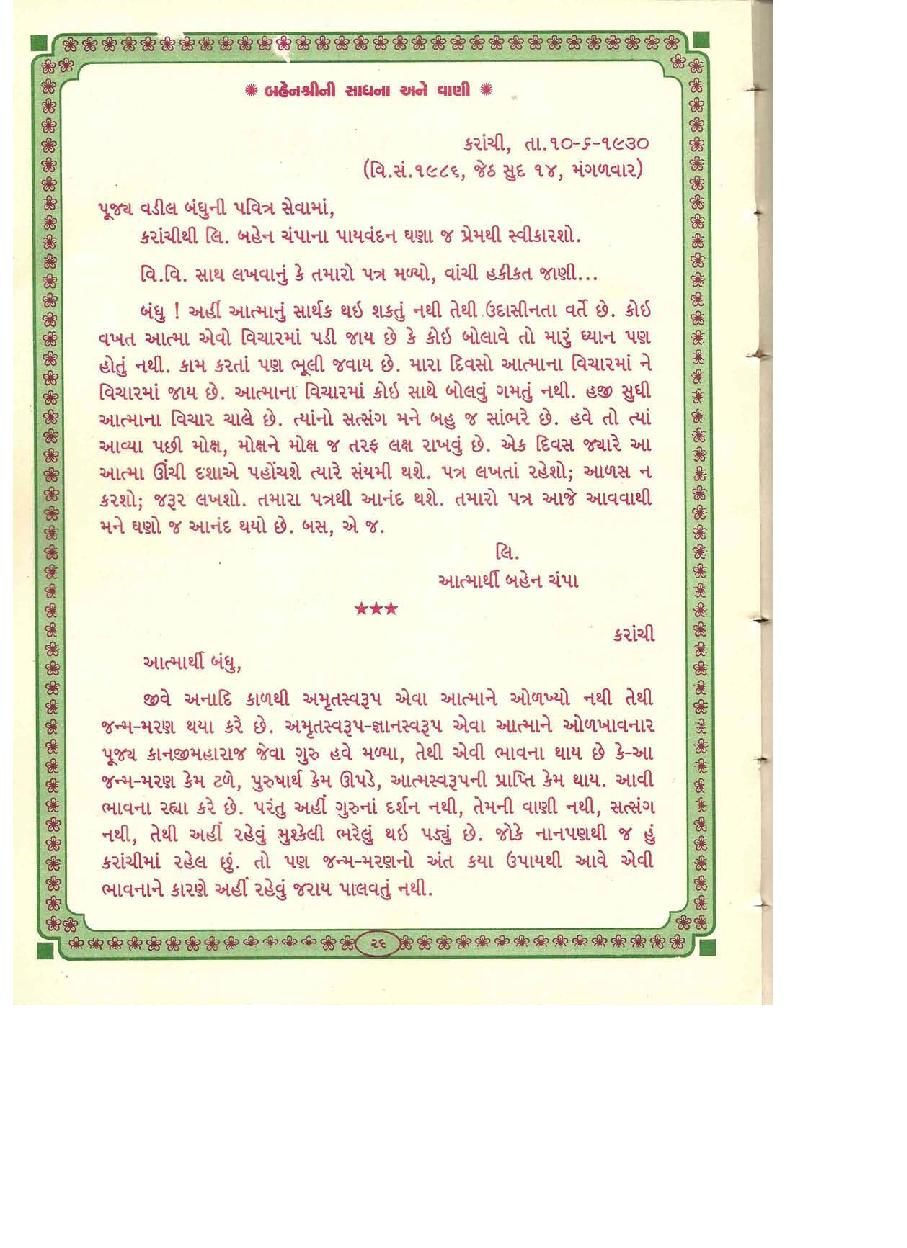 ✹ બહેનશ્રીની સાધના અને વાણી ✹
કરાંચી, તા.૧૦-૬-૧૯૩૦
(વિ.સં.૧૯૮૬, જેઠ સુદ ૧૪, મંગળવાર)
પૂજ્ય વડીલ બંધુની પવિત્ર સેવામાં,
કરાંચીથી લિ. બહેન ચંપાના પાયવંદન ઘણા જ પ્રેમથી સ્વીકારશો.
વિ.વિ. સાથ લખવાનું કે તમારો પત્ર મળ્યો, વાંચી હકીકત જાણી...
બંધુ ! અહીં આત્માનું સાર્થક થઇ શકતું નથી તેથી ઉદાસીનતા વર્તે છે. કોઇ
વખત આત્મા એવો વિચારમાં પડી જાય છે કે કોઇ બોલાવે તો મારું ધ્યાન પણ
હોતું નથી. કામ કરતાં પણ ભૂલી જવાય છે. મારા દિવસો આત્માના વિચારમાં ને
વિચારમાં જાય છે. આત્માના વિચારમાં કોઇ સાથે બોલવું ગમતું નથી. હજી સુધી
આત્માના વિચાર ચાલે છે. ત્યાંનો સત્સંગ મને બહુ જ સાંભરે છે. હવે તો ત્યાં
આવ્યા પછી મોક્ષ, મોક્ષને મોક્ષ જ તરફ લક્ષ રાખવું છે. એક દિવસ જ્યારે આ
આત્મા ઊંચી દશાએ પહોંચશે ત્યારે સંયમી થશે. પત્ર લખતાં રહેશો; આળસ ન
કરશો; જરૂર લખશો. તમારા પત્રથી આનંદ થશે. તમારો પત્ર આજે આવવાથી
મને ઘણો જ આનંદ થયો છે. બસ, એ જ.
લિ.
આત્માર્થી બહેન ચંપા
★★★
કરાંચી
આત્માર્થી બંધુ,
જીવે અનાદિ કાળથી અમૃતસ્વરૂપ એવા આત્માને ઓળખ્યો નથી તેથી
જન્મ-મરણ થયા કરે છે. અમૃતસ્વરૂપ-જ્ઞાનસ્વરૂપ એવા આત્માને ઓળખાવનાર
પૂજ્ય કાનજીમહારાજ જેવા ગુરુ હવે મળ્યા, તેથી એવી ભાવના થાય છે કે-આ
જન્મ-મરણ કેમ ટળે, પુરુષાર્થ કેમ ઊપડે, આત્મસ્વરૂપની પ્રાપ્તિ કેમ થાય. આવી
ભાવના રહ્યા કરે છે. પરંતુ અહીં ગુરુનાં દર્શન નથી, તેમની વાણી નથી, સત્સંગ
નથી, તેથી અહીં રહેવું મુશ્કેલી ભરેલું થઇ પડ્યું છે. જોકે નાનપણથી જ હું
કરાંચીમાં રહેલ છું. તો પણ જન્મ-મરણનો અંત કયા ઉપાયથી આવે એવી
ભાવનાને કારણે અહીં રહેવું જરાય પાલવતું નથી.
૨૬